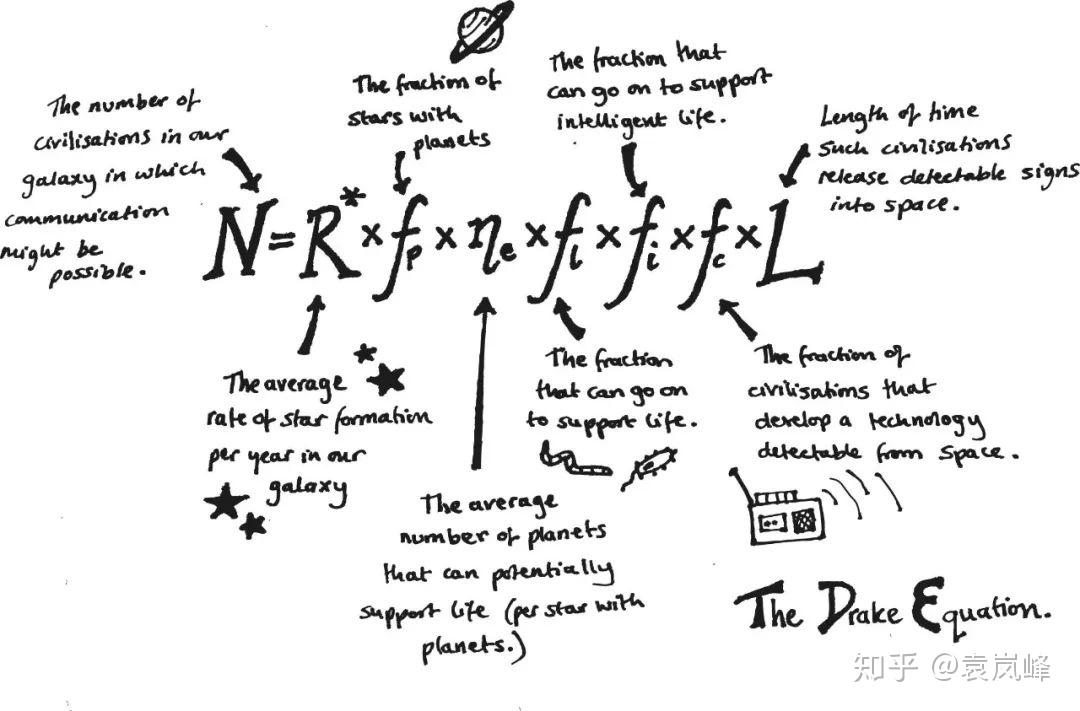 The number of
civilisations in our
galaxy in which
communication
might be
possible.
The fraction of
stars with
planets
The fraction that
can go on to support
intelligent life.
Length of time
such civilisations
release detectable signs
into space.
N = R* × fp × ηe × fl × fi × fc × L
The average
rate of star formation
per year in our
galaxy
The average
number of planets
that can potentially
support life (per star with
planets.)
The fraction
that can go on
to support life.
The fraction of
civilisations that
develop a technology
detectable from space.
The Drake Equation.
知乎 @袁岚峰